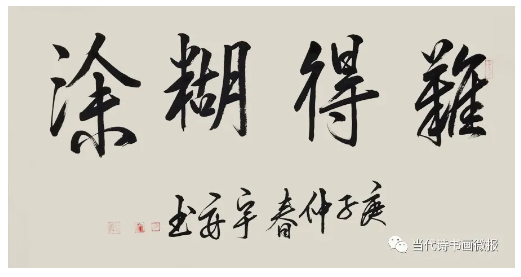 難得糊涂
庚子仲春宇安书
当代诗书画微报